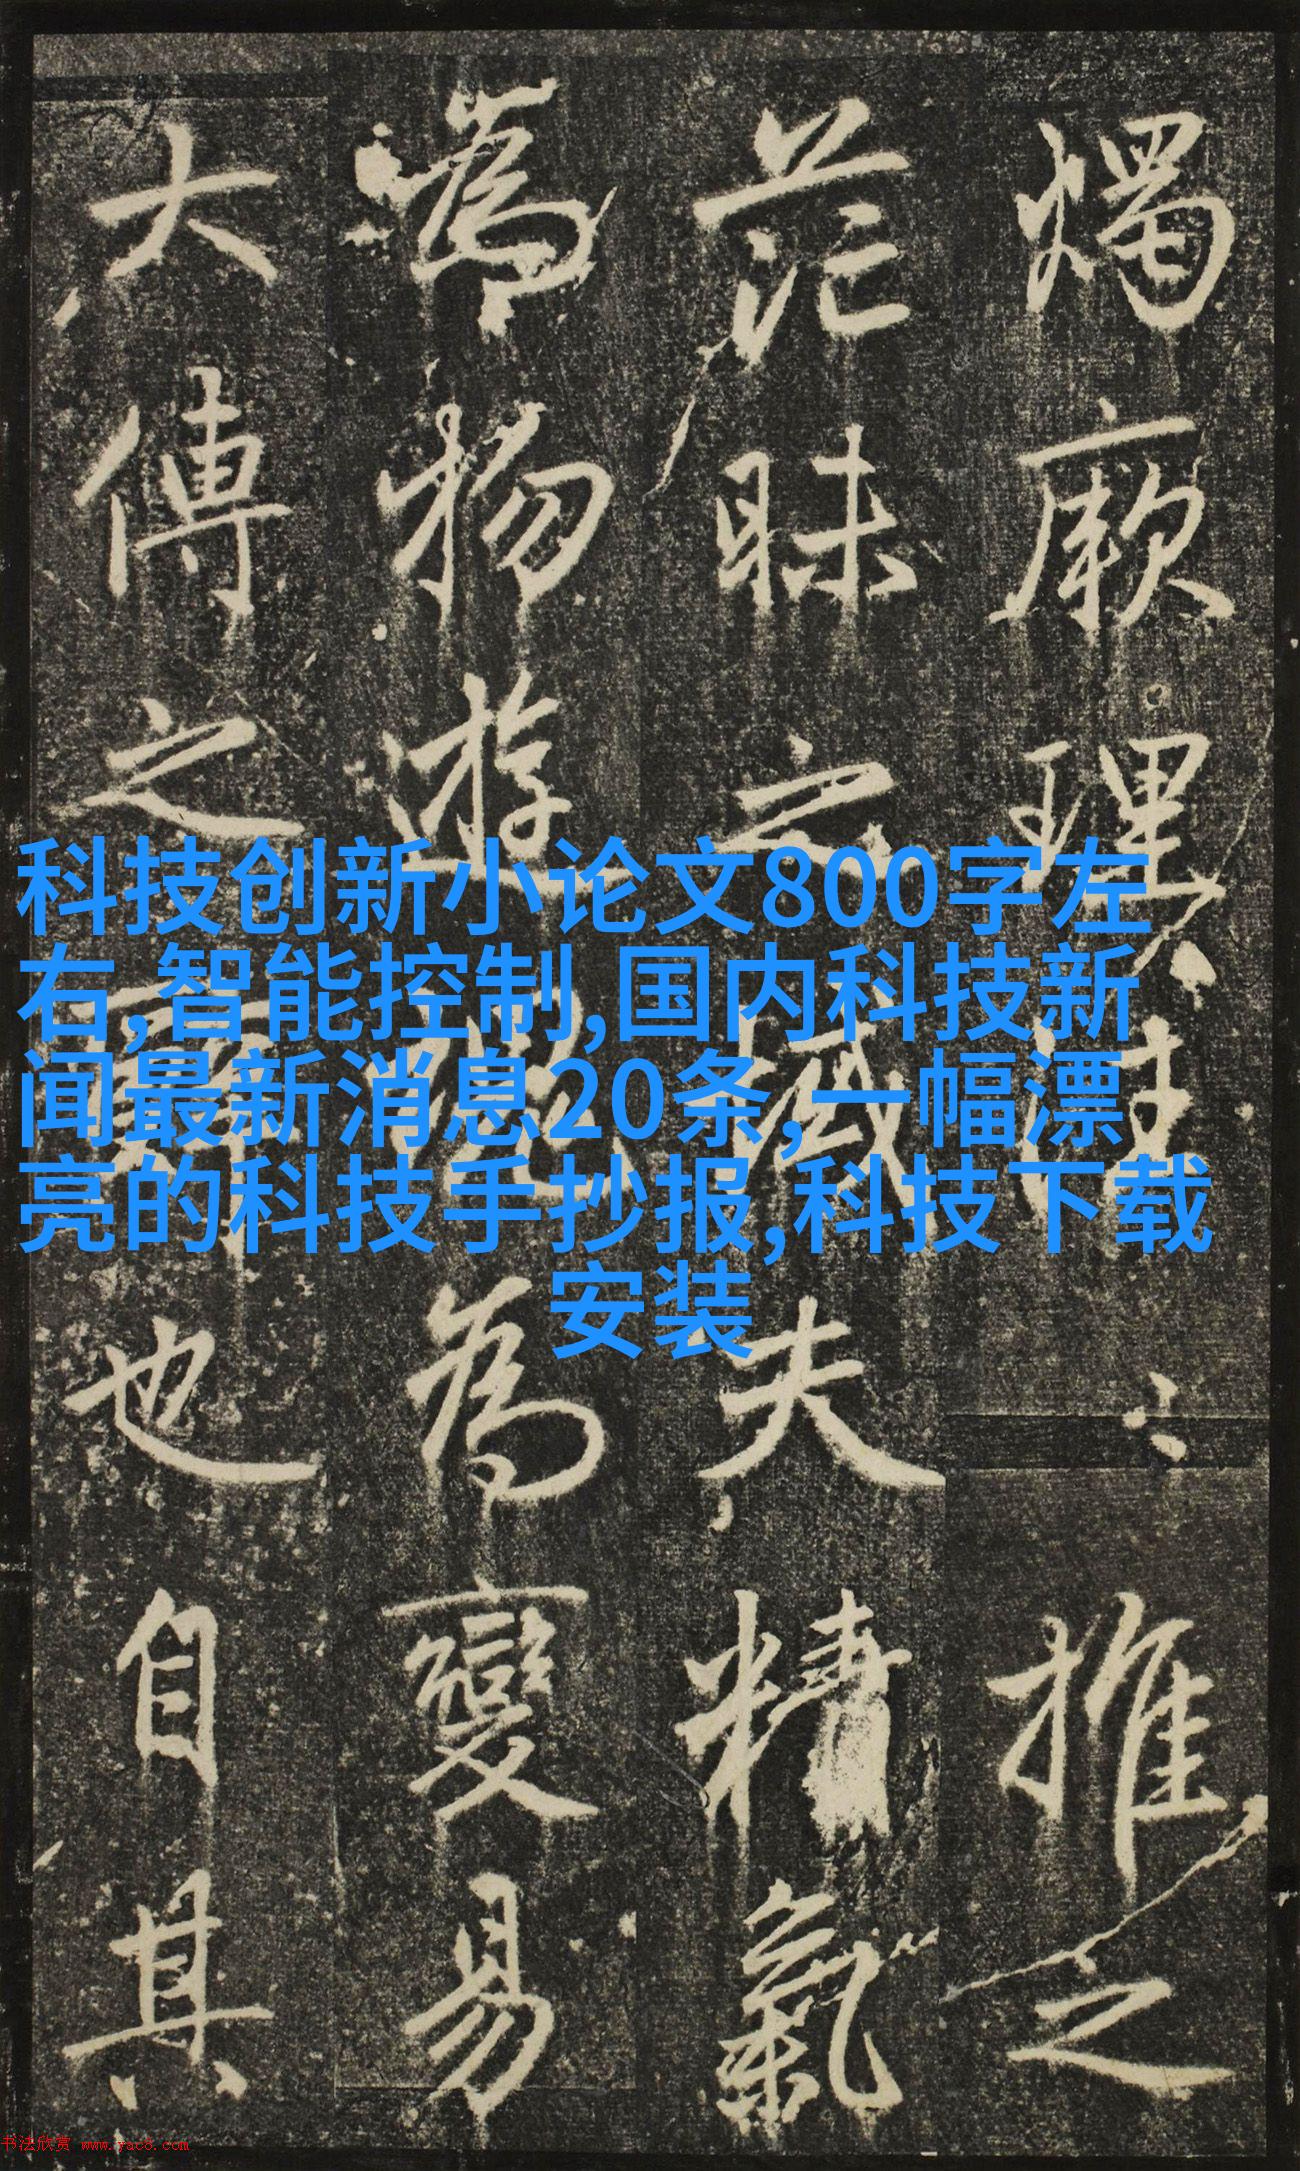 燭厥理 推之
茫昧之 夫精氣
為物遊 為變易
大傳之 也自其
科技创新小论文800字左
右,智能控制,国内科技新
闻最新消息20条,一幅漂
亮的科技手抄报,科技下载
安装
书法欣赏 www.yac8.com